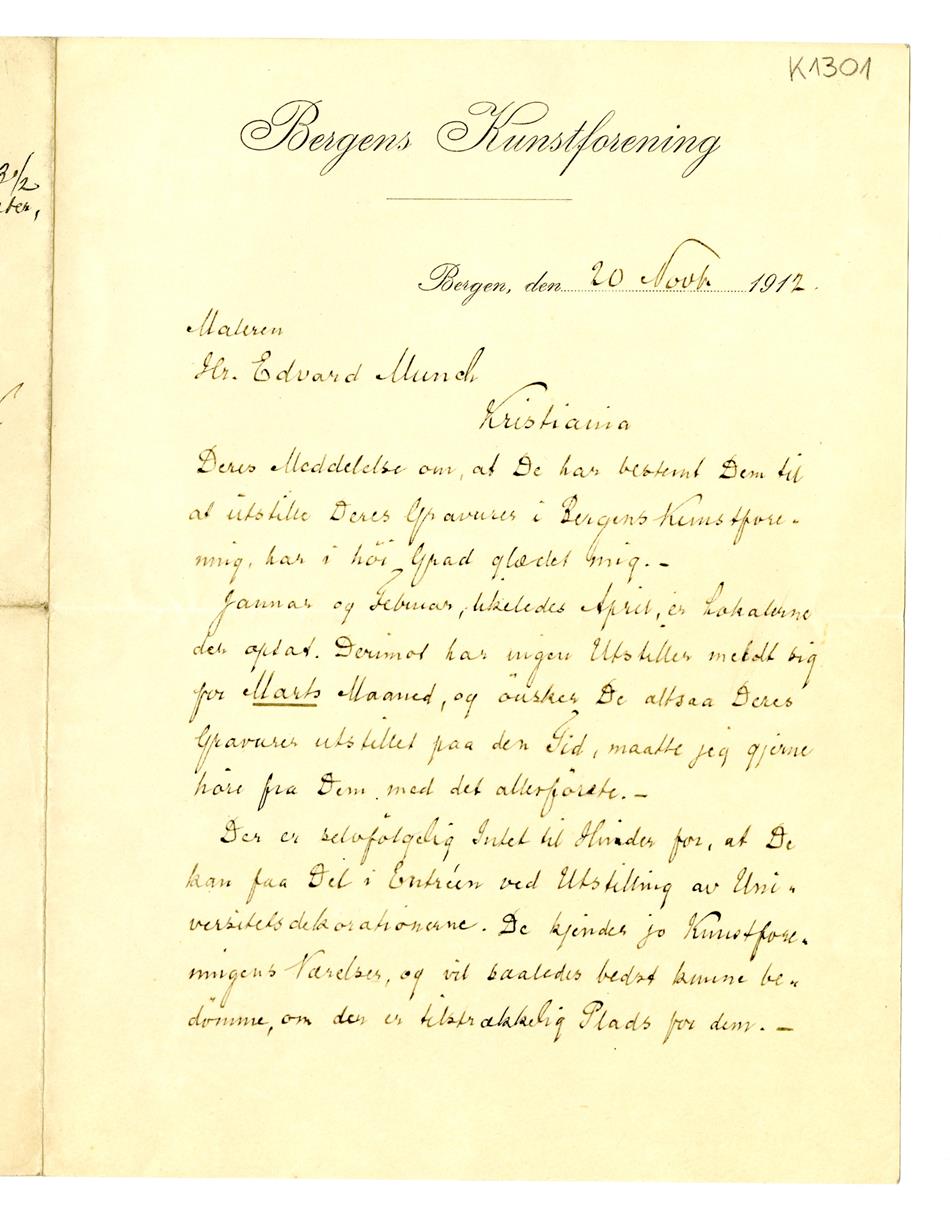 K1301
Bergens Kunstforening
3 1/2
ter,
Bergen, den 20 Novb. 1912.
Maleren
Hr. Edvard Munch
Kristiania
Deres Meddelelse om, at De har bestemt Dem til
at utstille Deres Gravurer i Bergens Kunstfore-
ning, har i höi Grad glædet mig. –
Januar og Februar, likeledes April, er Lokalerne
der optat. Derimot har ingen Utstiller meldt sig
for Marts Maaned, og önsker De altsaa Deres
Gravurer utstillet paa den Tid, maatte jeg gjerne
höre fra Dem med det allerförste. –
Der er selvfölgelig Intet til Hinder for, at De
kan faa Del i Entréen ved Utstilling av Uni-
versitetsdekorationerne. De kjender jo Kunstfore-
ningens Værelser, og vil saaledes bedst kunne be-
dömme, om der er tilstrækkelig Plads for dem. –